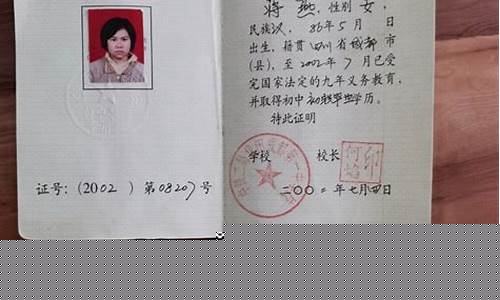 蒋燕，性别女，
民族汉，86年5月 日
出生，籍贯四川省成都市
(县)，至2002年7月已受
完国家法定的九年义务教育，
并取得初中初级毕业学历。
特此证明
学校 校长 何 印
二〇〇二年七月四日
证号：(2002 ) 第08207号